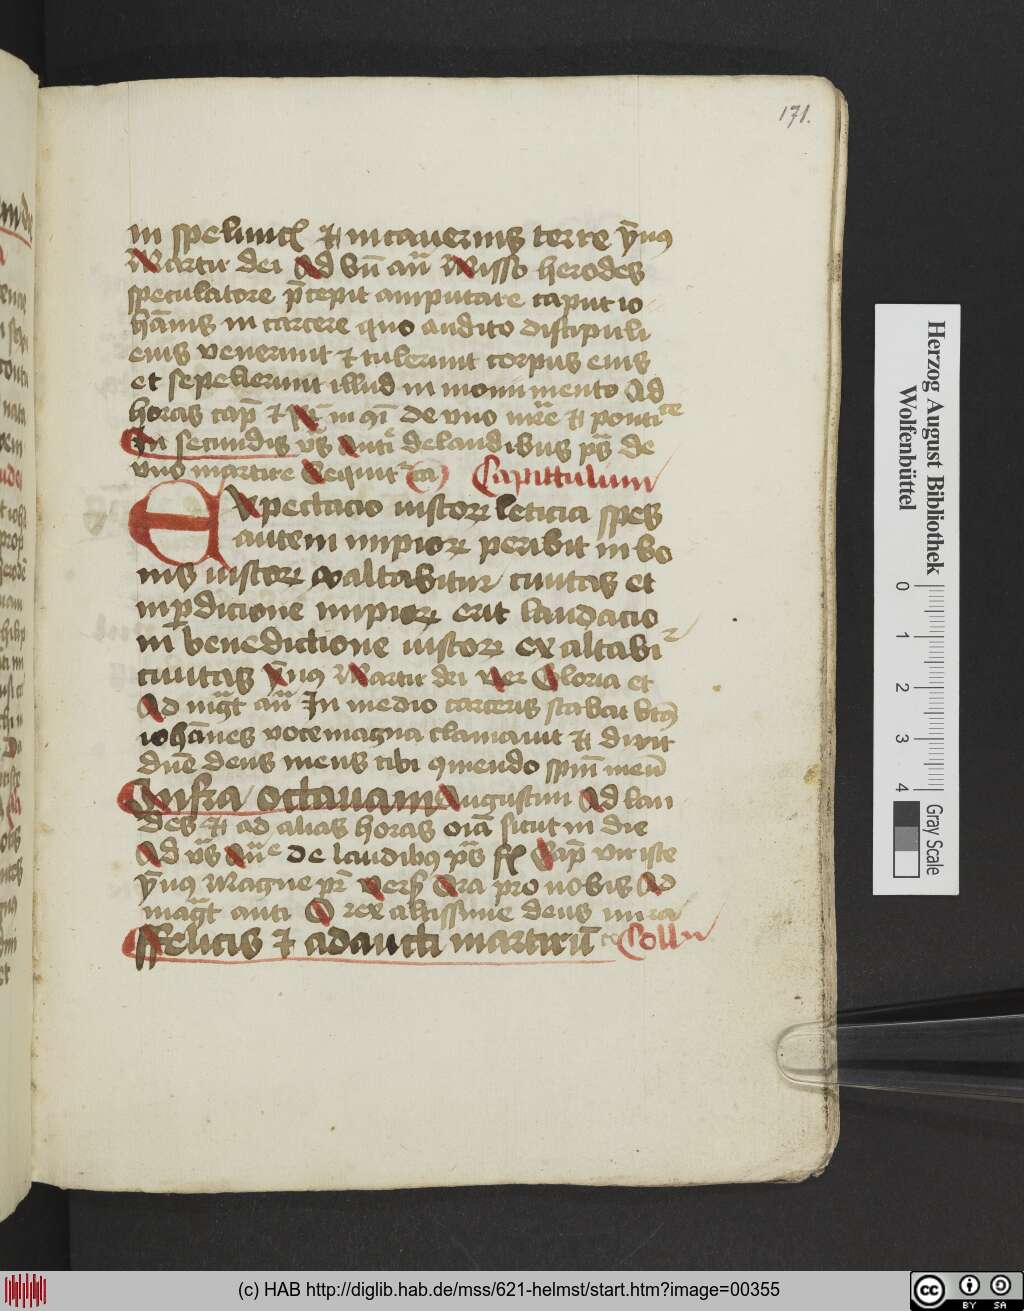 171.
in speluncis et in cavernis terre ẏmꝰ
Martir dei Ad bn̄ an̄ Misso herodes
speculatore p̄cepit amputare caput io
hānis in carcere quo audito discipuli
eius venerunt et tulerunt corpus eius
et sepelierunt illud in monumento Ad
horas cap̄ et in de uno mr̄e et ponti
In secundis vs̄ Anti de laudibus ps̄ de
uno martire Sequitr Capittulum
Expectacio iustoꝝ leticia spes
autem impioꝝ peribit in bo
nis iustoꝝ exaltabitur ciuitas et
in ꝑdicione impioꝝ erit laudacio
in benedictione iustoꝝ exaltabir
ciuitas ẏmꝰ Martir dei ver Gloria et
Ad mag̅t an̄ In medio carceris stabat bt̄ꝰ
iohānes voce magna clamauit et dixit
dn̄e deus meus tibi ꝯmendo spm̄ meū
Infra octauam Augustini Ad lau
des et ad alias horas oīa sicut in die
Ad vs̄ an̄e de laudibꝰ ps̄ fl Cap̄ vir iste
ẏmꝰ Magne pr̄ vers Ora pro nobis Ad
mag̅t anti O rex altissime deus
ffelicis et adaucti martirū Coll
Herzog August Bibliothek
Wolfenbüttel
0 1 2 3 4
Gray Scale
(c) HAB http://diglib.hab.de/mss/621-helmst/start.htm?image=00355
cc BY SA